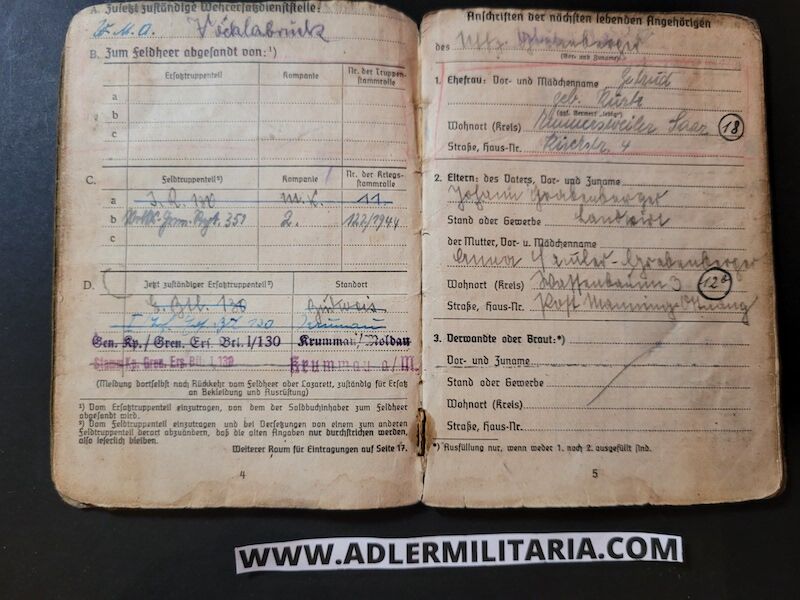 A. Zuletzt zuständige Wehrersatzdienststelle:
W.M.A. Vöcklabruck
B. Zum Feldheer abgesandt von:¹)
Ersatztruppenteil Kompanie Nr. der Truppen-
stammrolle
a
b
c
C. Feldtruppenteil²) Kompanie Nr. der Kriegs-
stammrolle
a J.R. 130 m.K. 11.
b 351 2. 122/1944
c
D. Jetzt zuständiger Ersatztruppenteil²) Standort
130
130 Krummau
Gen. Kp./Gren. Ers. Btl. I/130 Krummau/Moldau
Stamm Kp. Gren. Ers. Btl. I/130 Krummau a/M.
(Meldung dortselbst nach Rückkehr vom Feldheer oder Lazarett, zuständig für Ersatz
an Bekleidung und Ausrüstung)
¹) Vom Ersatztruppenteil einzutragen, von dem der Soldbuchinhaber zum Feldheer
abgesandt wird.
²) Vom Feldtruppenteil einzutragen und bei Versetzungen von einem zum anderen
Feldtruppenteil derart abzuändern, daß die alten Angaben nur durchstrichen werden,
also leserlich bleiben.
Weiterer Raum für Eintragungen auf Seite 17.
4
Anschriften der nächsten lebenden Angehörigen
des Uffz. Grabenberger
(Vor- und Zuname)
1. Ehefrau: Vor- und Mädchenname Getrud
geb.
(ggf. Vermerk „ledig“)
Wohnort (Kreis) Saar 18
Straße, Haus-Nr. Kirchstr. 4
2. Eltern: des Vaters, Vor- und Zuname
Johann Grabenberger
Stand oder Gewerbe Landwirt
der Mutter, Vor- u. Mädchenname
Anna Grabenberger
Wohnort (Kreis) 3 12a
Straße, Haus-Nr. Post Manning
3. Verwandte oder Braut:*)
Vor- und Zuname
Stand oder Gewerbe
Wohnort (Kreis)
Straße, Haus-Nr.
*) Ausfüllung nur, wenn weder 1. noch 2. ausgefüllt sind.
5
WWW.ADLERMILITARIA.COM